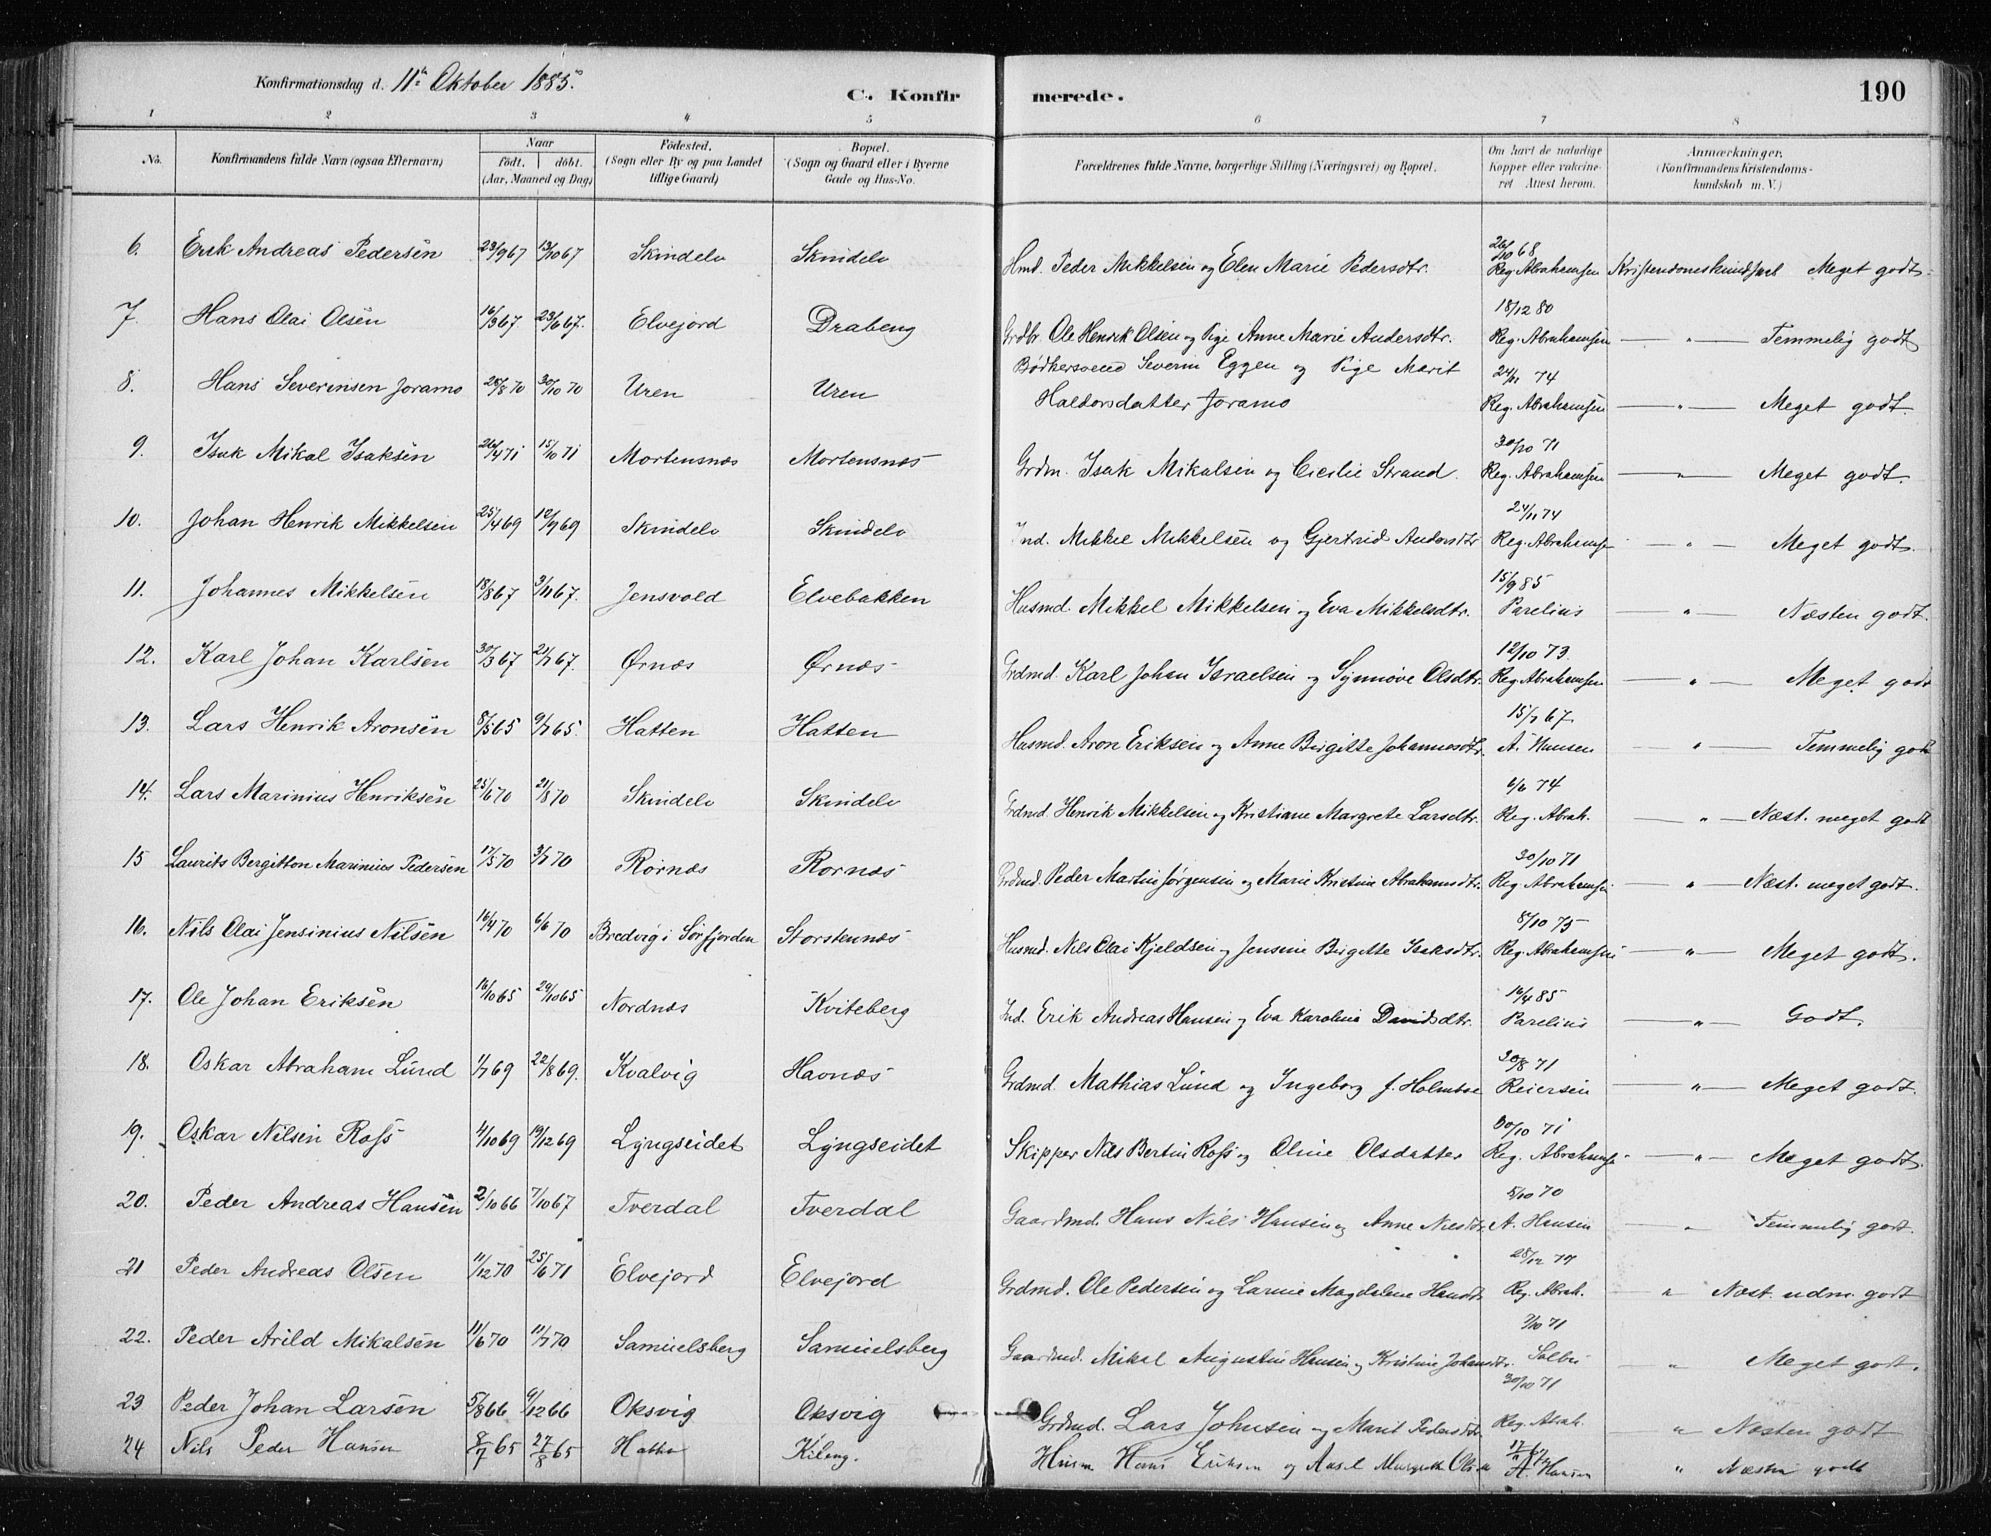 Konfirmationsdag d. 11te Oktober 1885.
C. Konfirmerede.
190
1 2 3 4 5 6 7 8
No. Konfirmandens fulde Navn (ogsaa Efternavn) Naar födt. döbt. (Aar, Maaned og Dag) Födested. (Sogn eller By og paa Landet tillige Gaard) Bopæl. (Sogn og Gaard eller i Byerne Gade og Hus-No. Forældrenes fulde Navne, borgerlige Stilling (Næringsvei) og Bopæl. Om havt de naturlige Kopper eller vakcineret Attest herom. Anmærkninger. (Konfirmandens Kristendomskundskab m. V.)
6. Erik Andreas Pedersen 23/9 67 13/10 67 Skindelv Skindelv Hmd. Peder Mikkelsen og Elen Marie Pedersdtr. 26/10 68 Reg. Abrahamsen Kristendomskundskab Meget godt.
7. Hans Olai Olsen 16/3 67. 23/6 67. Elvejord Drabeng Grdbr. Ole Henrik Olsen og Pige Anne Marie Andersdtr. 18/12 80 Reg. Abrahamsen — " — Temmelig godt
8. Hans Severinsen Joramo 28/8 70 30/10 70 Uren Uren Bødkersvend Severin Eggen og Pige Marit Haldorsdatter Joramo 24/11 74 Reg. Abrahamsen — " — Meget godt.
9. Isak Mikal Isaksen 26/4 71 15/10 71 Mortensnæs Mortensnæs Grdm. Isak Mikalsen og Cicilie Strand. 30/10 71 Reg. Abrahamsen — " — Meget godt.
10. Johan Henrik Mikkelsen 25/4 69 12/9 69 Skindelv Skindelv Ind. Mikkel Mikkelsen og Gjertrud Andersdtr 24/11 74 Reg. Abrahamse — " — Meget godt.
11. Johannes Mikkelsen 18/8 67 3/11 67. Jensvold Elvebakken Husmd. Mikkel Mikkelsen og Eva Mikkelsdtr. 15/9 85 Parelius " — Næsten godt.
12. Karl Johan Karlsen 30/3 67 21/7 67. Ørnæs Ørnæs Grdmd. Karl Johan Israelsen og Synnøve Olsdtr. 12/10 73. Reg. Abrahamsen — " — Meget godt
13. Lars Henrik Aronsen 8/5 65 9/7 65. Hatten Hatten Husmd. Aron Eriksen og Anne Birgitte Johannesdtr. 15/7 67. A. Hansen — " — Temmelig godt
14. Lars Marinius Henriksen 25/6 70 21/8 70 Skindelv Skindelv Grdmd. Henrik Mikkelsen og Kristiane Margrete Larsdtr. 6/6 74 Reg. Abrah. " — Næst. meget godt
15 Laurits Bergitton Marinius Pedersen 17/5 70 3/7 70 Rornæs Rornæs Grdmd. Peder Martin Jørgensen og Marie Kristine Abrahamsdtr. 30/10 71 Reg. Abrahamsen — " — Næst. meget godt.
16. Nils Olai Jensinius Nilsen 16/4 70 6/6 70 Bredvig i Sørfjorden Storstennæs Husmd. Nils Olai Kjeldsen og Jensine Birgitte Isaksdtr. 8/10 75 Reg. Abrahamsen — " — Meget godt.
17. Ole Johan Eriksen 16/10 65 29/10 65 Nordnæs Kviteberg Ind. Erik Andreas Hansen og Eva Karoline Davidsdtr. 16/4 85 Parelius — " — Godt.
18. Oskar Abraham Lund 1/7 69 22/8 69. Kvalvig Havnæs Grdmd. Mathias Lund og Ingeborg f. Holmboe 30/8 71 Reiersen " — Meget godt.
19. Oskar Nilsen Ross 4/10 69 19/12 69 Lyngseidet Lyngseidet Skipper Nils Bertin Ross og Oline Olsdatter 30/10 71 Reg. Abrahamse — " — Meget godt.
20. Peder Andreas Hansen 2/10 66 7/10 67 Tverdal Tverdal Gaardmd. Hans Nils Hansen og Anne Nilsdtr. 5/10 70 A. Hansen " Temmelig godt.
21 Peder Andreas Olsen 11/12 70 25/6 71 Elvejord Elvejord Grdmd. Ole Pedersen og Larine Magdalene Hansdt. 28/12 77 Reg. Abrah. " Næst. udm. godt
22. Peder Arild Mikalsen 11/6 70 11/7 70 Samuelsberg Samuelsberg Gaardmd. Mikal Augustin Hansen og Kristine Johansdtr. 7/10 71 " Meget godt.
23 Peder Johan Larsen 5/8 66 9/12 66 Oksvig Oksvig Grdmd. Lars Johnsen og Marit Pedersdtr 30/10 71 Reg. Abrah. " Næsten godt
24 Nils Peder Hansen 8/7 65 27/8 65 Kileng. Husm Hans Eriksen og Aasel Margrethe A Hansen " Næsten godt